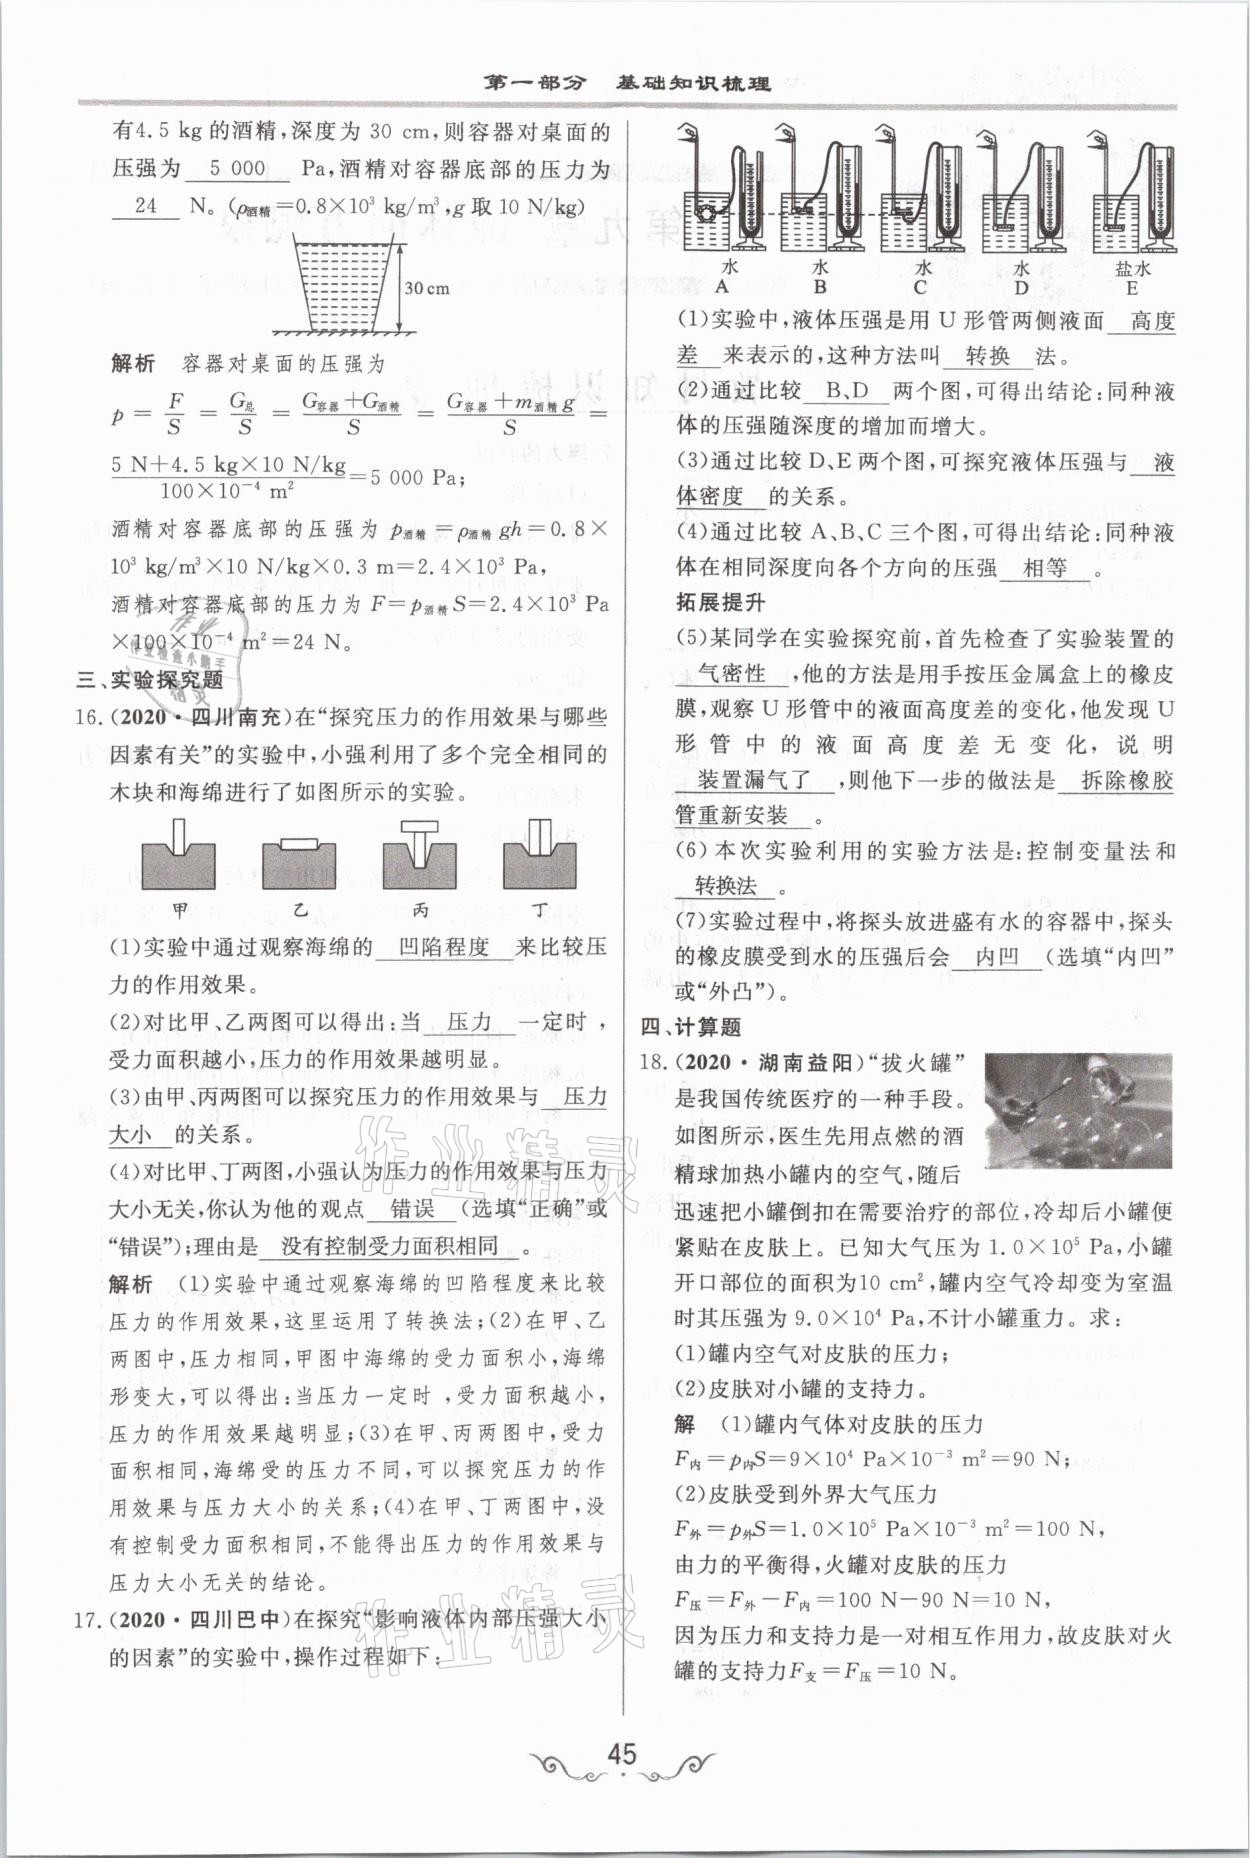 第一部分 基础知识梳理
有4.5 kg的酒精,深度为30 cm,则容器对桌面的
压强为 5 000 Pa,酒精对容器底部的压力为
24 N。(ρ酒精=0.8×10³ kg/m³,g取10 N/kg)
30 cm
解析 容器对桌面的压强为
p = F/S = G总/S = (G容器+G酒精)/S = (G容器+m酒精g)/S =
(5 N+4.5 kg×10 N/kg)/(100×10⁻⁴ m²)=5 000 Pa;
酒精对容器底部的压强为p酒精=ρ酒精gh=0.8×
10³ kg/m³×10 N/kg×0.3 m=2.4×10³ Pa,
酒精对容器底部的压力为F=p酒精S=2.4×10³ Pa
×100×10⁻⁴ m²=24 N。
三、实验探究题
16.(2020·四川南充)在“探究压力的作用效果与哪些
因素有关”的实验中,小强利用了多个完全相同的
木块和海绵进行了如图所示的实验。
甲 乙 丙 丁
(1)实验中通过观察海绵的 凹陷程度 来比较压
力的作用效果。
(2)对比甲、乙两图可以得出:当 压力 一定时,
受力面积越小,压力的作用效果越明显。
(3)由甲、丙两图可以探究压力的作用效果与 压力
大小 的关系。
(4)对比甲、丁两图,小强认为压力的作用效果与压力
大小无关,你认为他的观点 错误 (选填“正确”或
“错误”);理由是 没有控制受力面积相同 。
解析 (1)实验中通过观察海绵的凹陷程度来比较
压力的作用效果,这里运用了转换法;(2)在甲、乙
两图中,压力相同,甲图中海绵的受力面积小,海绵
形变大,可以得出:当压力一定时,受力面积越小,
压力的作用效果越明显;(3)在甲、丙两图中,受力
面积相同,海绵受的压力不同,可以探究压力的作
用效果与压力大小的关系;(4)在甲、丁两图中,没
有控制受力面积相同,不能得出压力的作用效果与
压力大小无关的结论。
17.(2020·四川巴中)在探究“影响液体内部压强大小
的因素”的实验中,操作过程如下:
水 水 水 水 盐水
A B C D E
(1)实验中,液体压强是用U形管两侧液面 高度
差 来表示的,这种方法叫 转换 法。
(2)通过比较 B、D 两个图,可得出结论:同种液
体的压强随深度的增加而增大。
(3)通过比较D、E两个图,可探究液体压强与 液
体密度 的关系。
(4)通过比较A、B、C三个图,可得出结论:同种液
体在相同深度向各个方向的压强 相等 。
拓展提升
(5)某同学在实验探究前,首先检查了实验装置的
气密性 ,他的方法是用手按压金属盒上的橡皮
膜,观察U形管中的液面高度差的变化,他发现U
形管中的液面高度差无变化,说明
装置漏气了 ,则他下一步的做法是 拆除橡胶
管重新安装 。
(6)本次实验利用的实验方法是:控制变量法和
转换法 。
(7)实验过程中,将探头放进盛有水的容器中,探头
的橡皮膜受到水的压强后会 内凹 (选填“内凹”
或“外凸”)。
四、计算题
18.(2020·湖南益阳)“拔火罐”
是我国传统医疗的一种手段。
如图所示,医生先用点燃的酒
精球加热小罐内的空气,随后
迅速把小罐倒扣在需要治疗的部位,冷却后小罐便
紧贴在皮肤上。已知大气压为1.0×10⁵ Pa,小罐
开口部位的面积为10 cm²,罐内空气冷却变为室温
时其压强为9.0×10⁴ Pa,不计小罐重力。求:
(1)罐内空气对皮肤的压力;
(2)皮肤对小罐的支持力。
解 (1)罐内气体对皮肤的压力
F内=p内S=9×10⁴ Pa×10⁻³ m²=90 N;
(2)皮肤受到外界大气压力
F外=p外S=1.0×10⁵ Pa×10⁻³ m²=100 N,
由力的平衡得,火罐对皮肤的压力
F压=F外-F内=100 N-90 N=10 N,
因为压力和支持力是一对相互作用力,故皮肤对火
罐的支持力F支=F压=10 N。
作业精灵
作业精灵
45